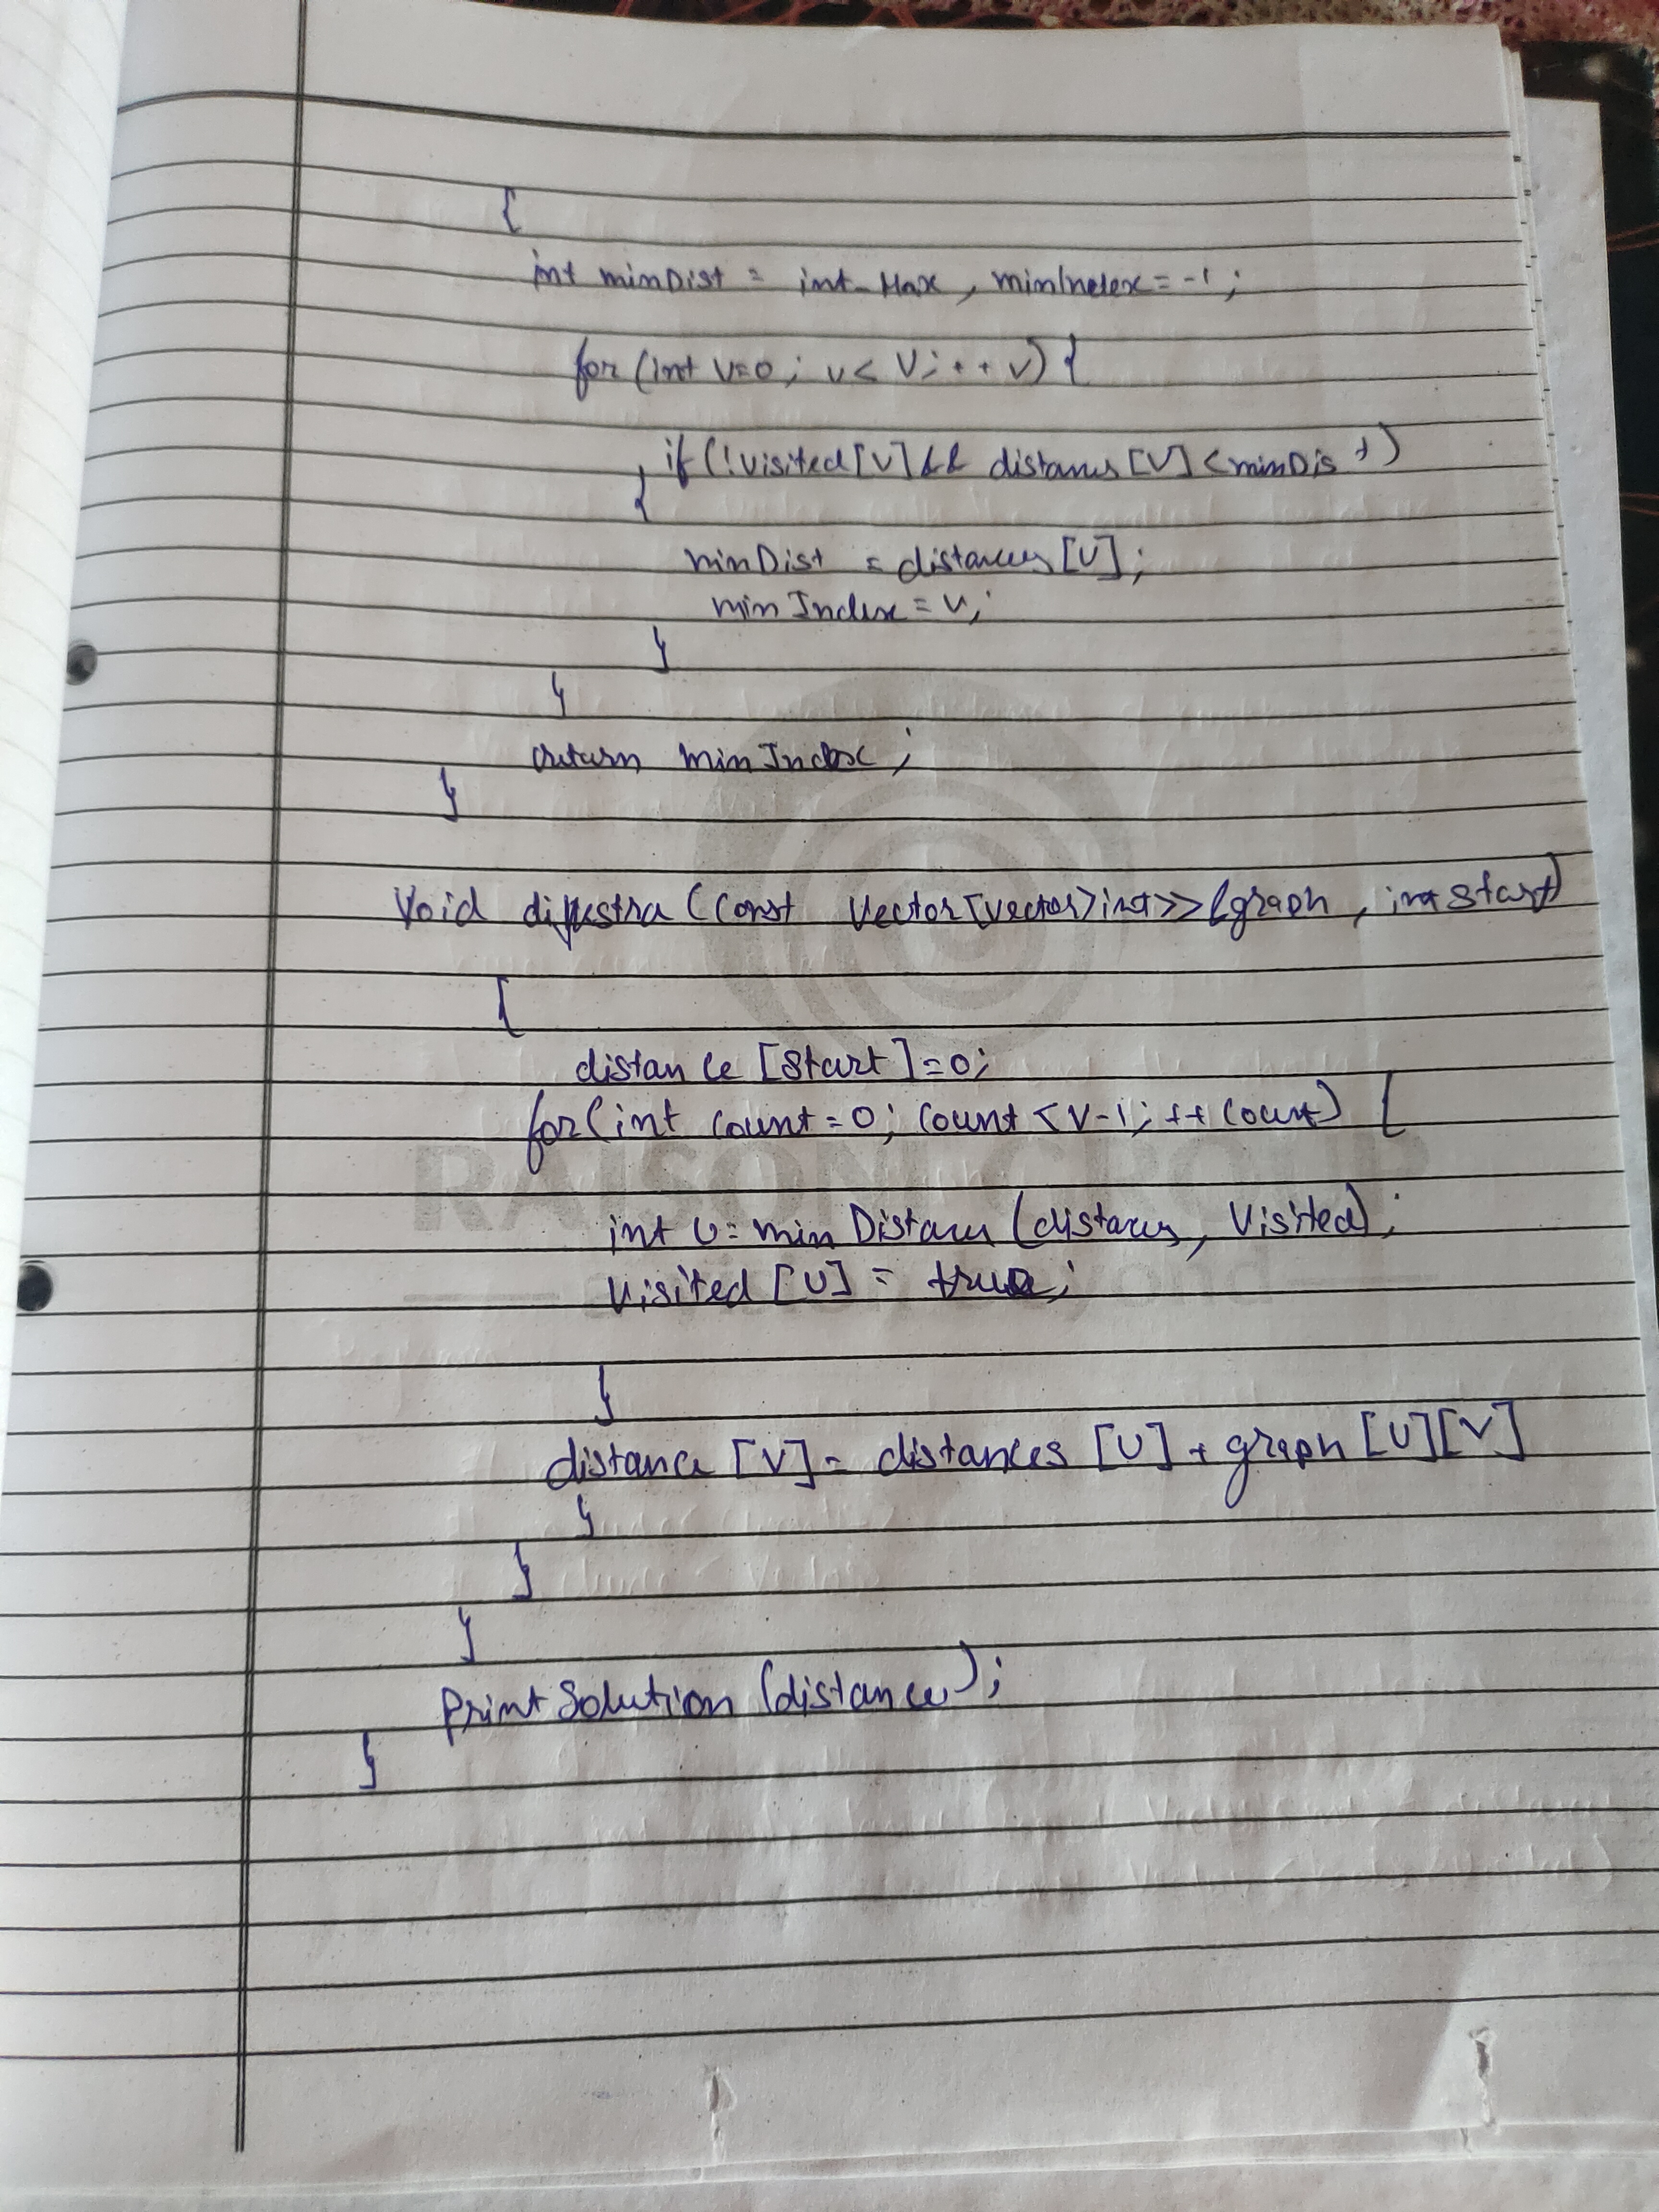 {
int minDist = int_Max, minIndex = -1;
for (int v=0; v< V; ++v) {
if (!visited[v] && distances[v] < minDist)
{
minDist = distances[v];
minIndex = v;
}
}
return minIndex;
}
Void dijkstra (const Vector[vector>int>> &graph, int start)
{
distance [start]=0;
for (int count=0; count <V-1; ++count) {
int u= minDistance (distances, Visited);
Visited [u] = true;
}
distance [v]= distances [u] + graph [u][v]
}
}
}
printSolution (distance);
}
RAISONI GROUP